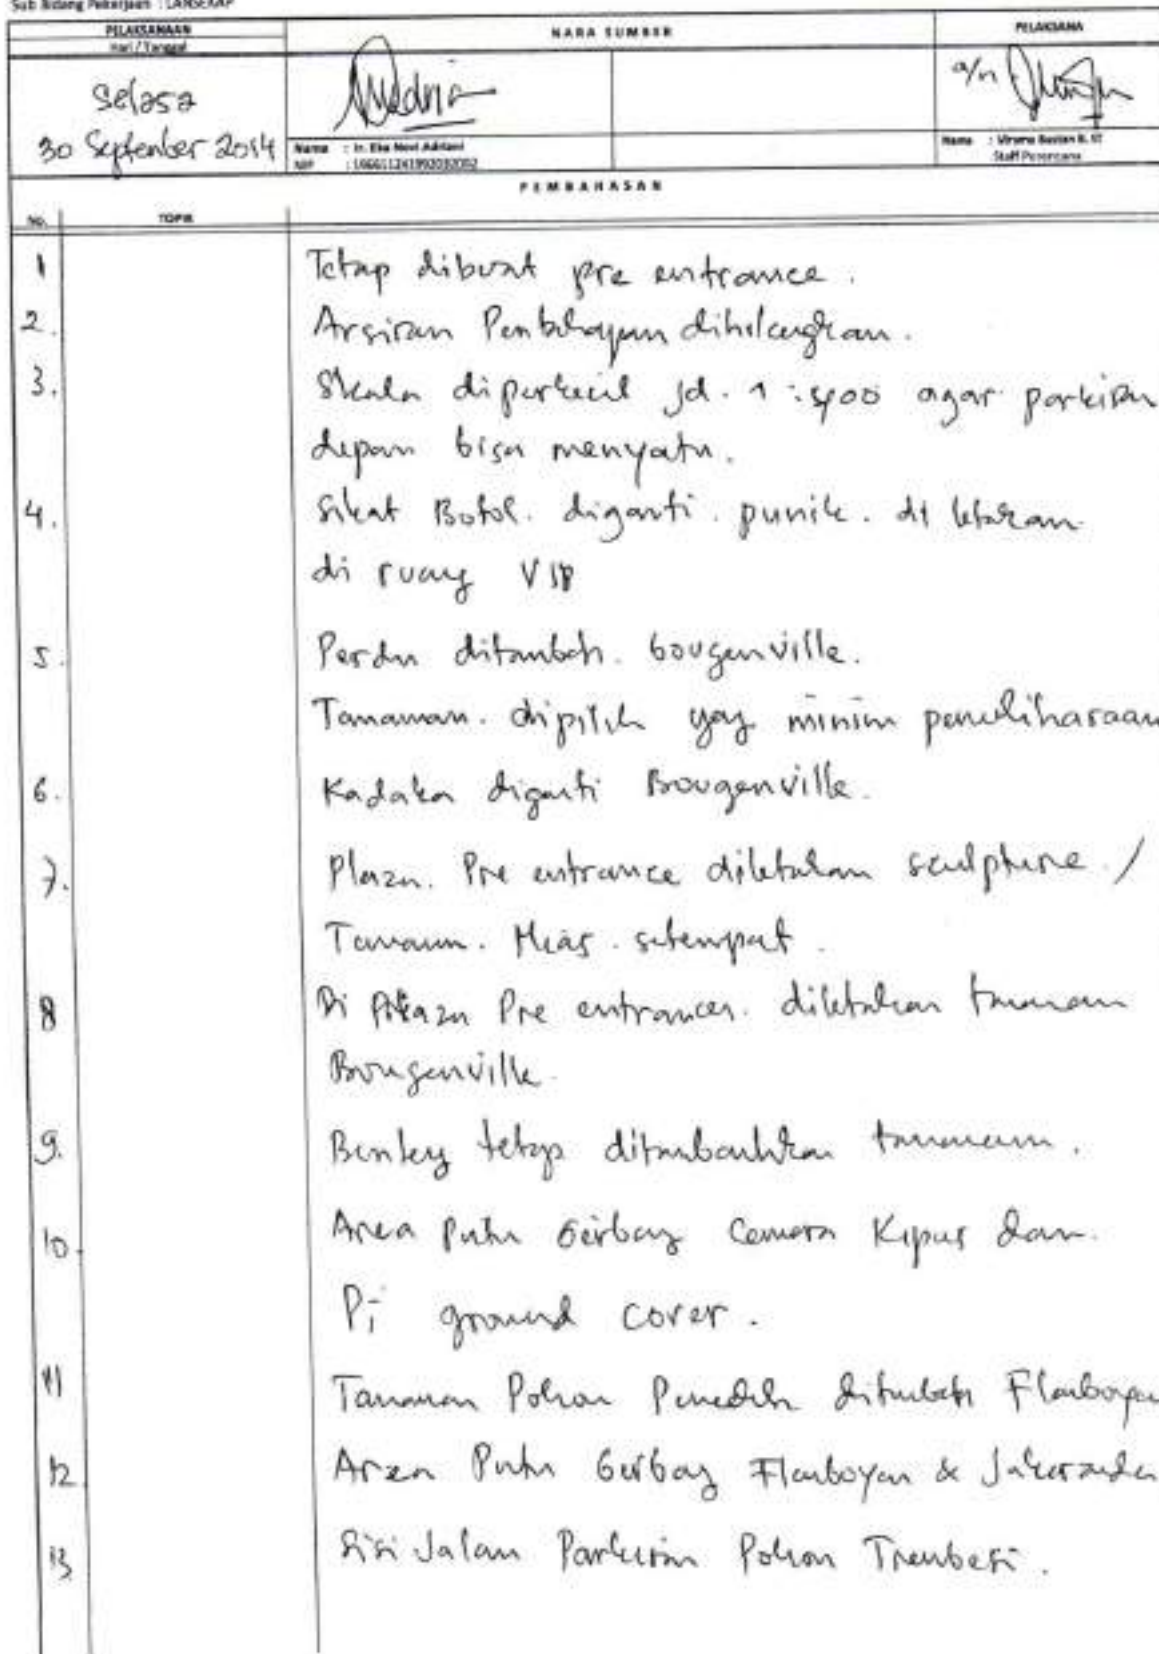 Sub Bidang Pekerjaan : LANSEKAP
PELAKSANAAN
Hari / Tanggal
NARA SUMBER
PELAKSANA
Selasa
30 September 2014
a/n
Nama : Ir. Eka Novi Adriani
NIP : 196611241992032002
Nama : Wirama Bustan R. ST
Staff Perencana
PEMBAHASAN
No. TOPIK
1 Tetap dibuat pre entrance.
2. Arsiran Pembahayan dihilangkan.
3. Skala diperkecil jd. 1 : 500 agar parkiran
depan bisa menyatu.
4. Sikat Botol. diganti. punik. di letakan
di ruang VIP
5. Perdu ditambah. bougenville.
Tanaman. dipilih yang minim pemeliharaan
6. Kadaka diganti Bougenville.
7. Plaza. Pre entrance diletakan sculpture /
Tanaman. Hias. setempat.
8 Di Plaza Pre entrances. diletakan tanaman
Bougenville.
9. Benteng tetap ditambahkan tanaman.
10. Area Pintu Gerbang Cemara Kipas dan.
Pi ground cover.
11 Tanaman Pohon Peneduh ditambah Flamboyan
12 Area Pintu Gerbang Flamboyan & Jakaranda
13 Sisi Jalan Parkiran Pohon Trembesi.